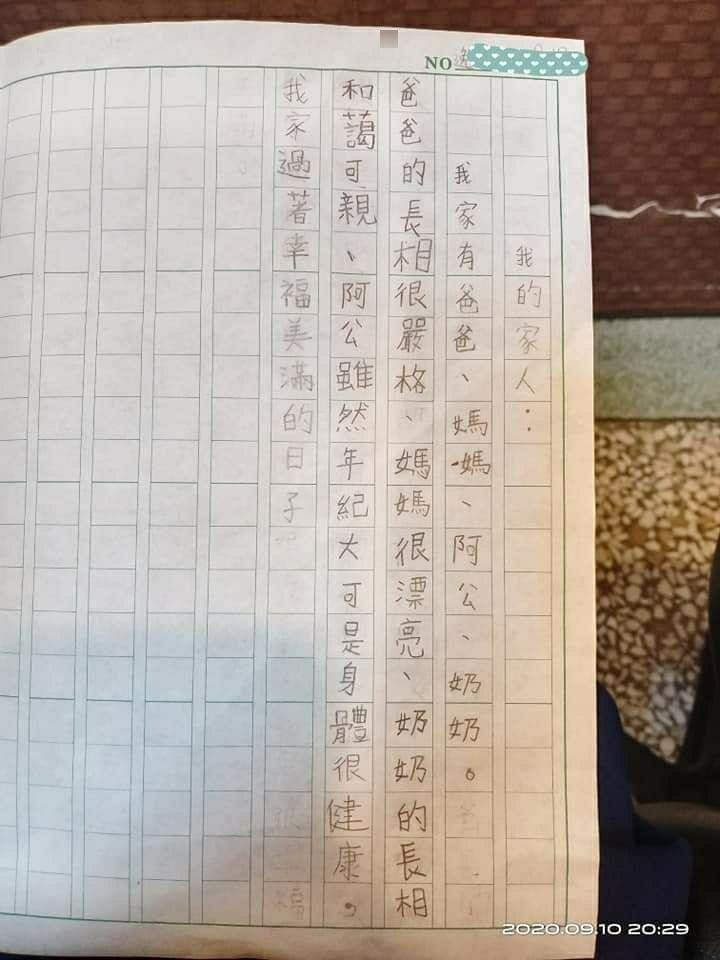 NO
我的家人：
我家有爸爸、媽媽、阿公、奶奶。
爸爸的長相很嚴格、媽媽很漂亮、奶奶的長相
和藹可親、阿公雖然年紀大可是身體很健康，
我家過著幸福美滿的日子
2020.09.10 20:29